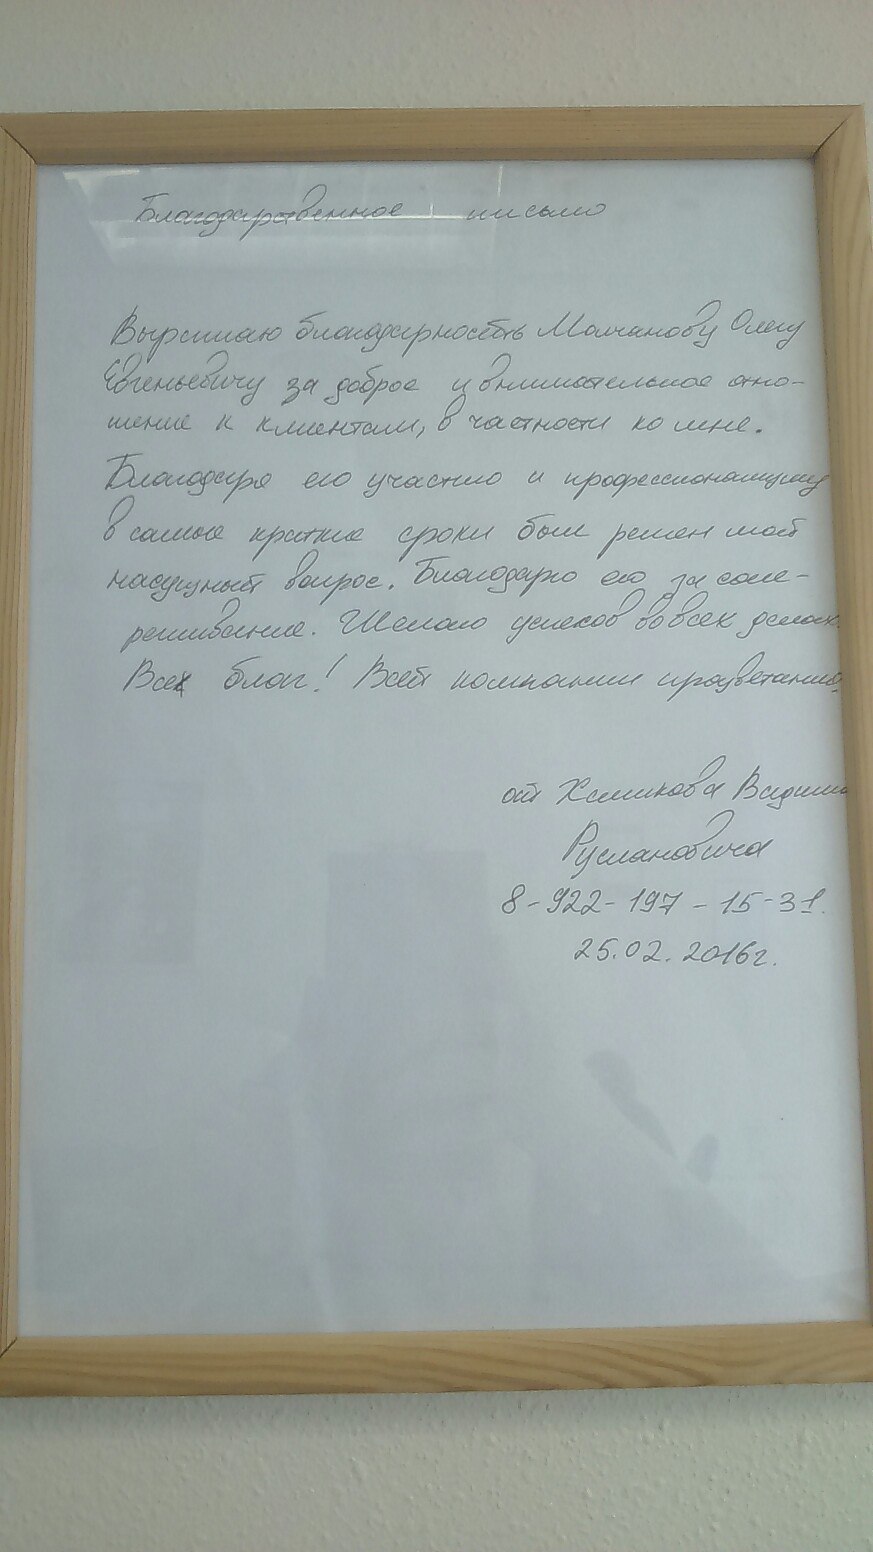 Благодарственное письмо
Выражаю благодарность Молчанову Олегу
Евгеньевичу за доброе и внимательное отно-
шение к клиентам, в частности ко мне.
Благодаря его участию и профессионализму
в самые краткие сроки был решен мой
насущный вопрос. Благодарю его за сопе-
реживание. Желаю успехов во всех делах.
Всех благ! Всей компании процветания.
от Хамикова Вадима
Руслановича
8-922-197-15-31.
25.02.2016г.